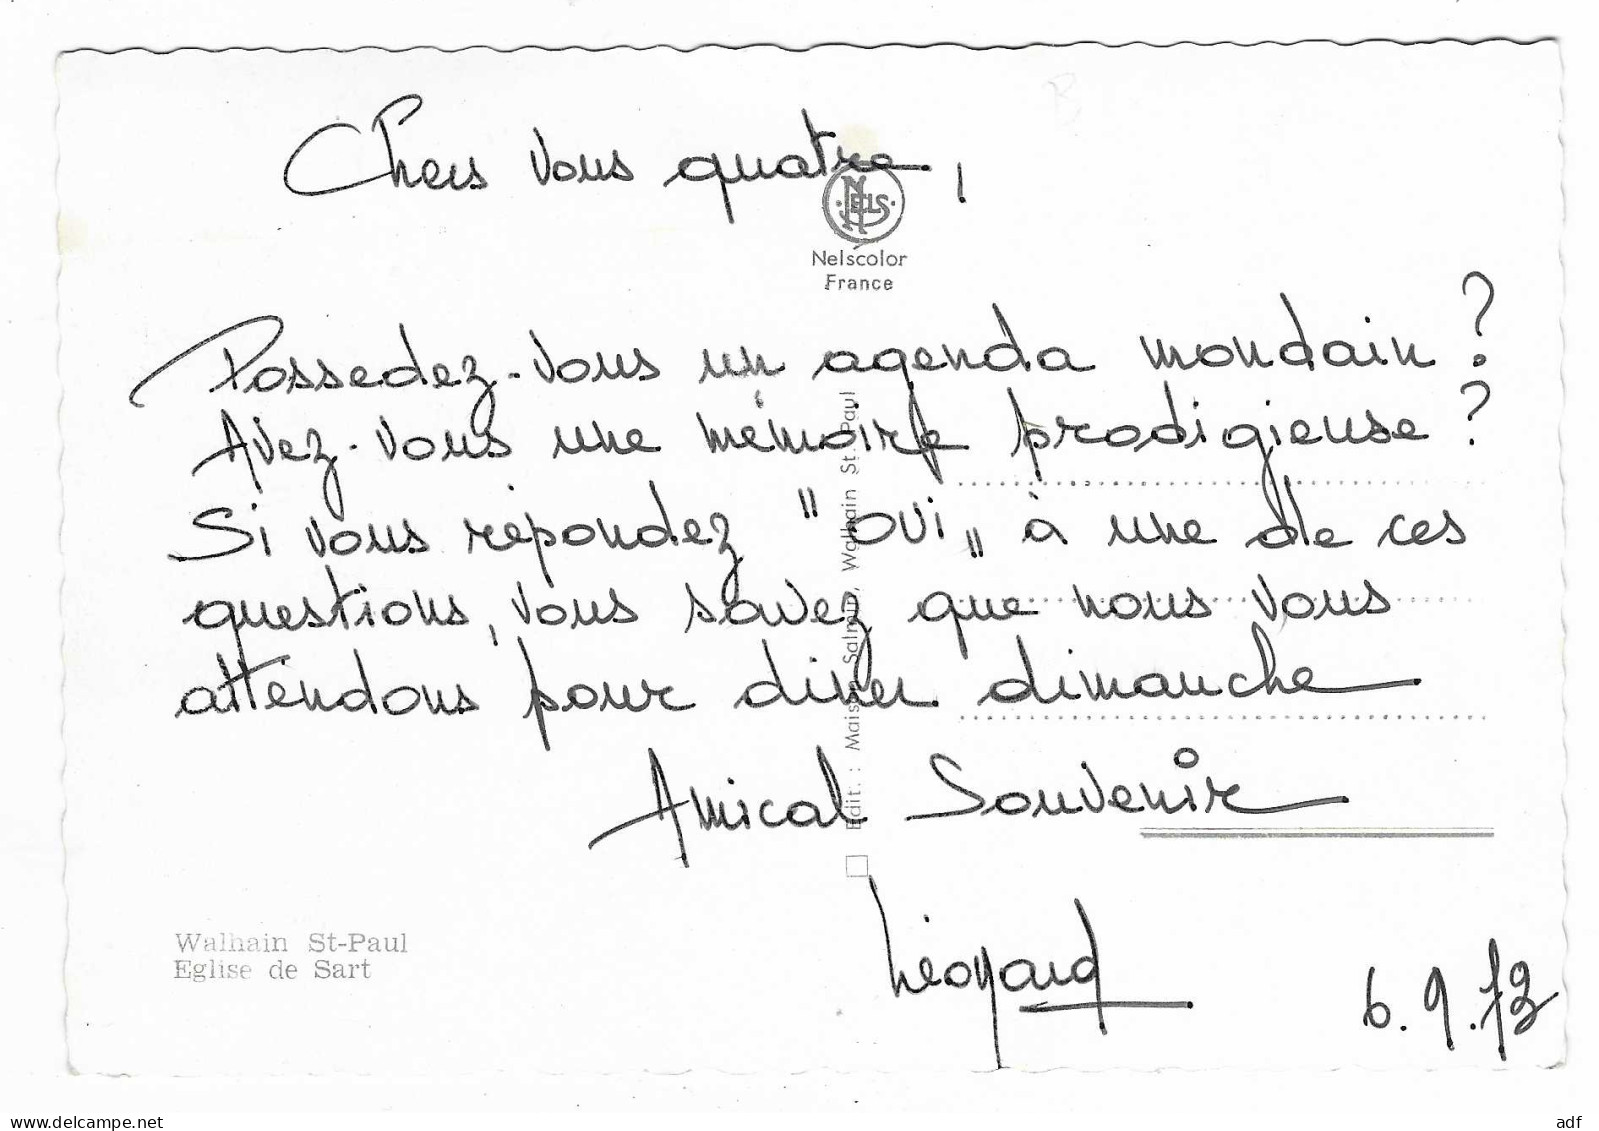 Chers vous quatre,
NELS
Nelscolor
France
Possedez-vous un agenda mondain ?
Avez-vous une mémoire prodigieuse ?
Si vous répondez "oui" à une de ces
questions, vous savez que nous vous
attendons pour diner dimanche
Amical Souvenir
Edit. : Maison Salmin, Walhain St. Paul
Walhain St-Paul
Eglise de Sart
6.9.73
adf
www.delcampe.net